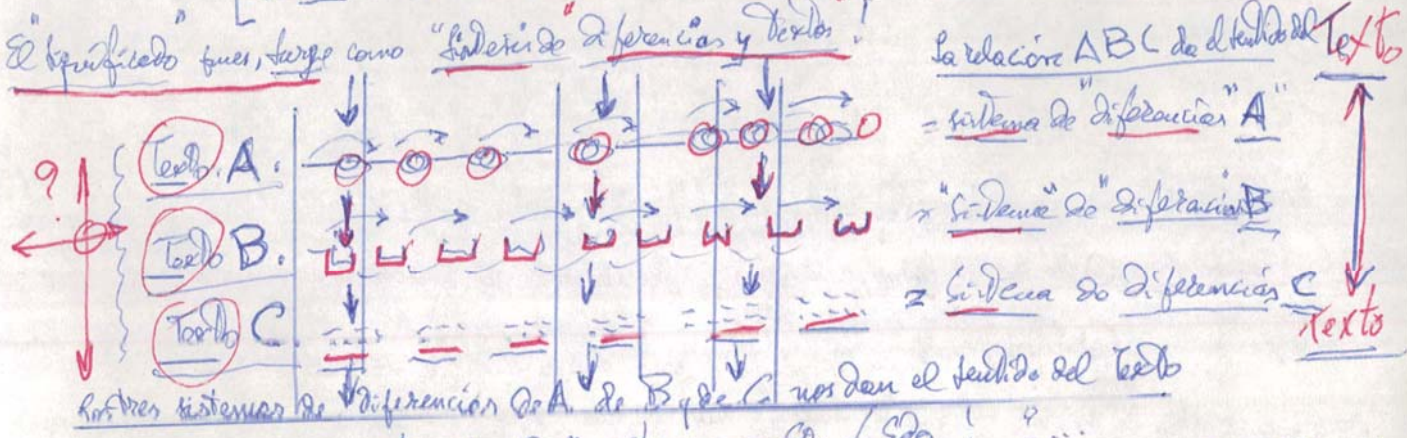 El "significado" pues, surge como "síntesis de" diferencias y textos!
La relación ABC da el sentido del Texto
Texto A.
= sistema de "diferencias" A"
?
Texto B.
= "sistema" de "diferencias B
Texto C
= Sistema de diferencias C
Texto
Los tres sistemas de diferencias de A. de B y de C nos dan el sentido del Texto